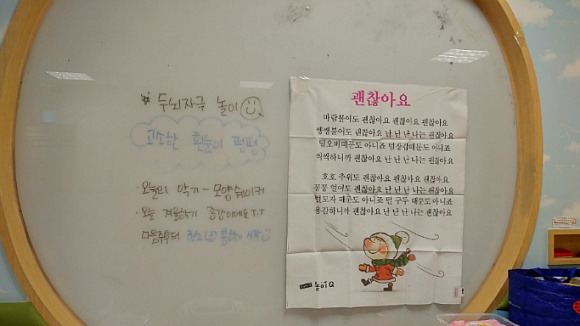 ※ 두뇌자극 놀이
고소한 흰눈이 펑펑
· 오늘의 악기 - 모양쉐이커
· 오늘 겨울학기 종강이에요 ㅜㅜ
다음주부터
괜찮아요
바람불어도 괜찮아요 괜찮아요 괜찮아요
쌩쌩불어도 괜찮아요 난 난 난 나는 괜찮아요
털오버때문도 아니죠 털장갑때문도 아니죠
씩씩하니까 괜찮아요 난 난 난 나는 괜찮아요
호호 추워도 괜찮아요 괜찮아요 괜찮아요
꽁꽁 얼어도 괜찮아요 난 난 난 나는 괜찮아요
털모자 때문도 아니죠 털 구두 때문도 아니죠
용감하니까 괜찮아요 난 난 난 나는 괜찮아요
놀이Q